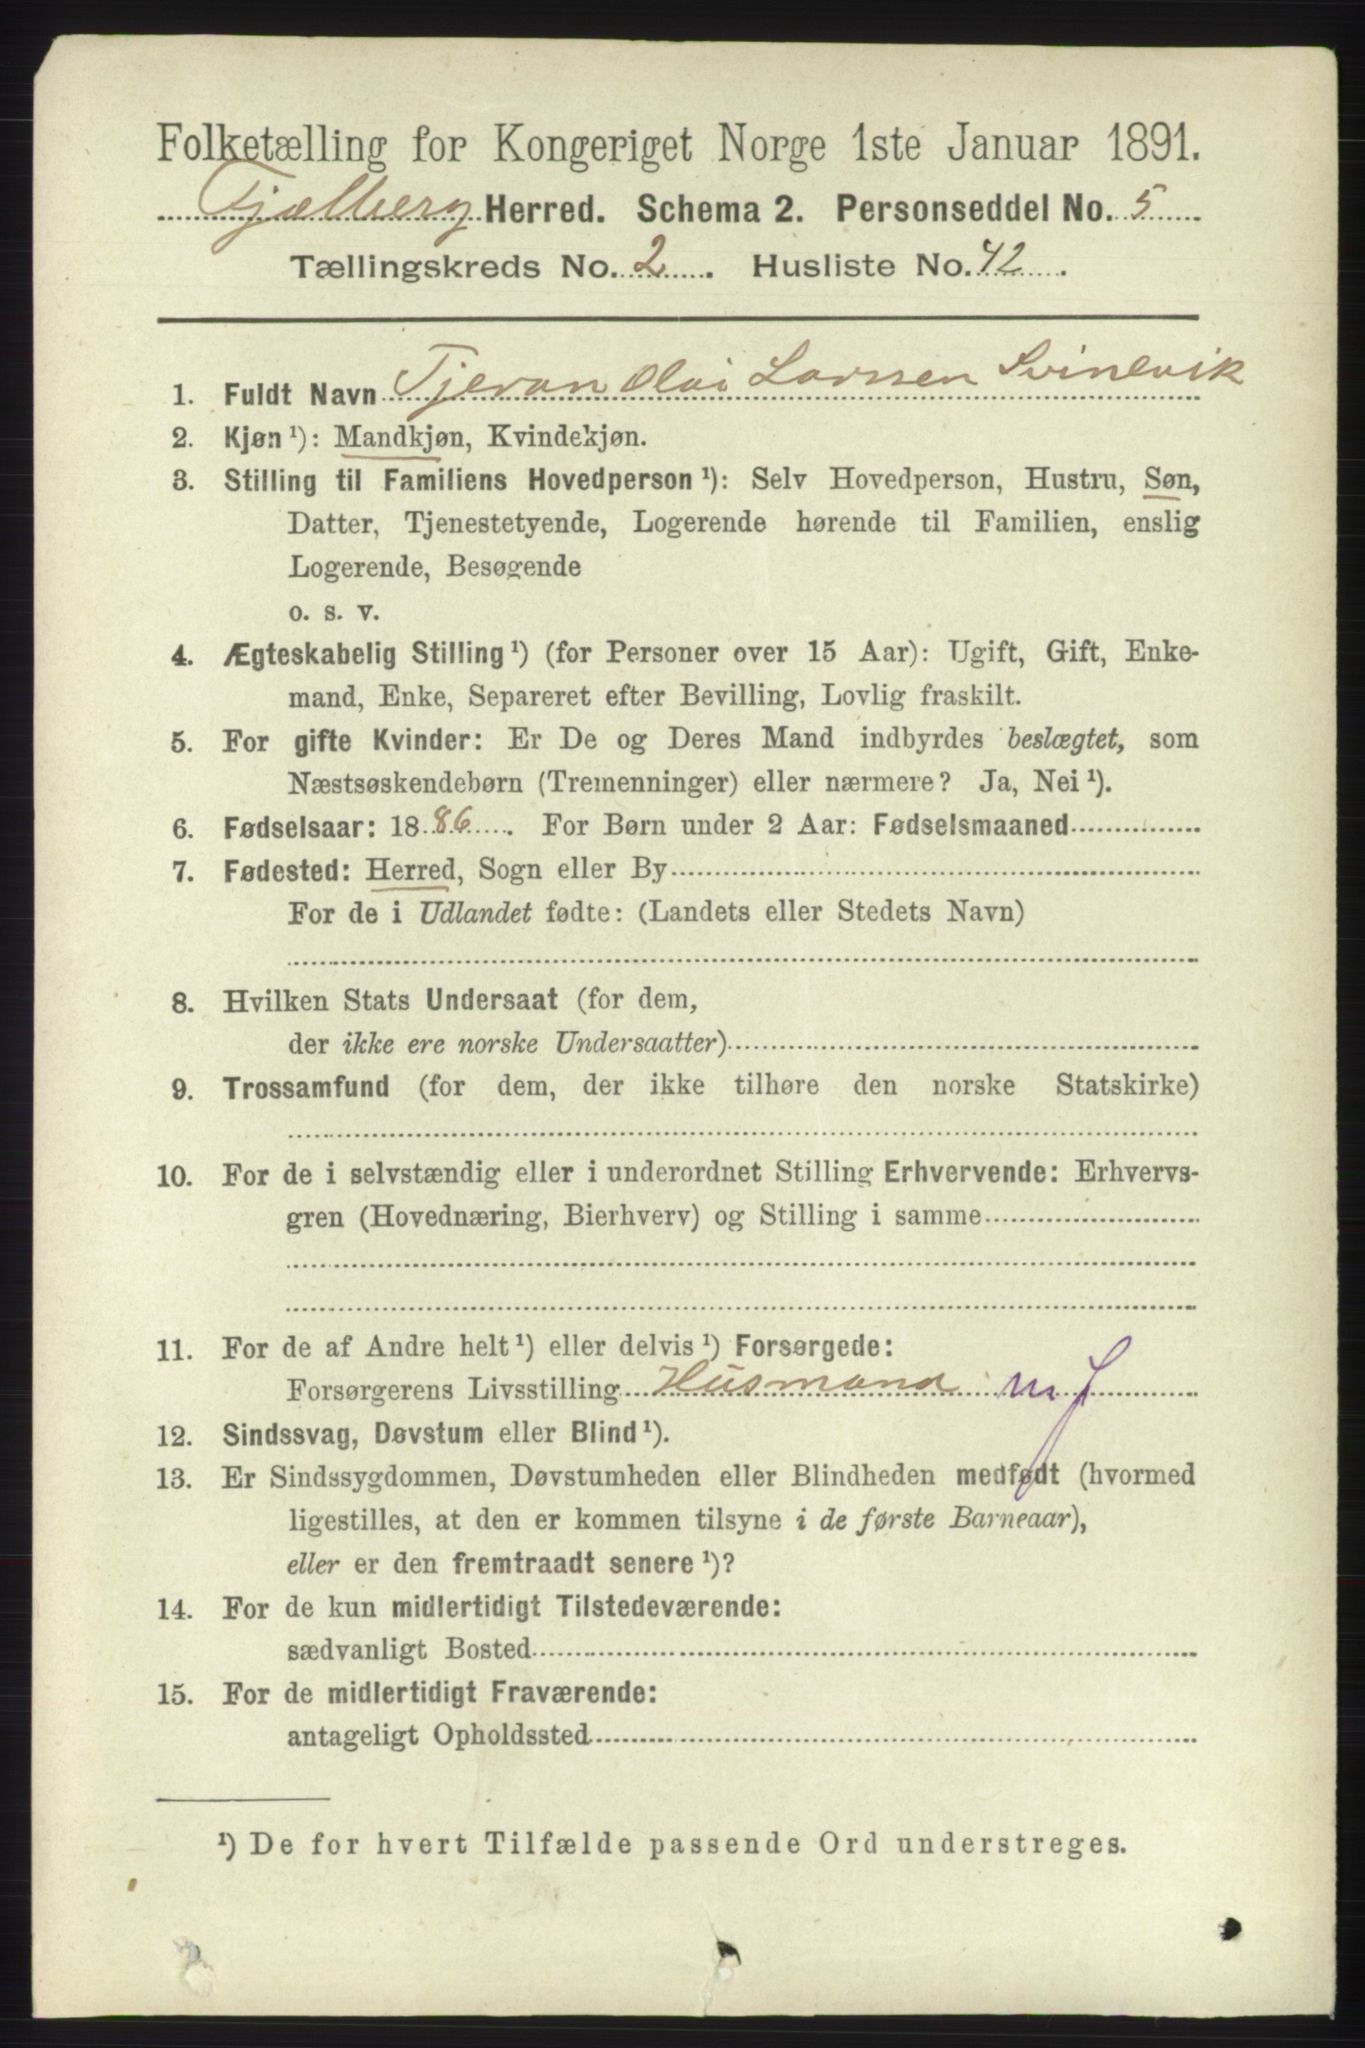 Folketælling for Kongeriget Norge 1ste Januar 1891.
Fjælberg Herred. Schema 2. Personseddel No. 5
Tællingskreds No. 2. Husliste No. 42.
1. Fuldt Navn Tjeran Olai Larssen Svinevik
2. Kjøn¹): Mandkjøn, Kvindekjøn.
3. Stilling til Familiens Hovedperson¹): Selv Hovedperson, Hustru, Søn,
Datter, Tjenestetyende, Logerende hørende til Familien, enslig
Logerende, Besøgende
o. s. v.
4. Ægteskabelig Stilling¹) (for Personer over 15 Aar): Ugift, Gift, Enke-
mand, Enke, Separeret efter Bevilling, Lovlig fraskilt.
5. For gifte Kvinder: Er De og Deres Mand indbyrdes beslægtet, som
Næstsøskendebørn (Tremenninger) eller nærmere? Ja, Nei¹).
6. Fødselsaar: 1886. For Børn under 2 Aar: Fødselsmaaned
7. Fødested: Herred, Sogn eller By
For de i Udlandet fødte: (Landets eller Stedets Navn)
8. Hvilken Stats Undersaat (for dem,
der ikke ere norske Undersaatter)
9. Trossamfund (for dem, der ikke tilhøre den norske Statskirke)
10. For de i selvstændig eller i underordnet Stilling Erhvervende: Erhvervs-
gren (Hovednæring, Bierhverv) og Stilling i samme
11. For de af Andre helt¹) eller delvis¹) Forsørgede:
Forsørgerens Livsstilling Husmand m J
12. Sindssvag, Døvstum eller Blind¹).
13. Er Sindssygdommen, Døvstumheden eller Blindheden medfødt (hvormed
ligestilles, at den er kommen tilsyne i de første Barneaar),
eller er den fremtraadt senere¹)?
14. For de kun midlertidigt Tilstedeværende:
sædvanligt Bosted
15. For de midlertidigt Fraværende:
antageligt Opholdssted
¹) De for hvert Tilfælde passende Ord understreges.